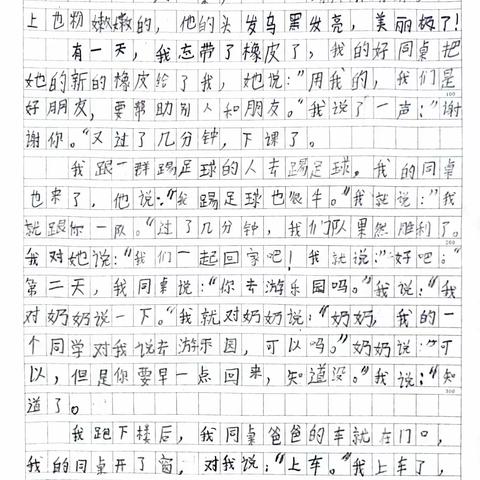 上也粉嫩嫩的，他的头发乌黑发亮，美丽极了！
有一天，我忘带了橡皮了，我的好同桌把
她的新的橡皮给了我，她说：“用我的，我们是
好朋友，要帮助别人和朋友。“我说了一声：”谢
谢你。“又过了几分钟，下课了。
我跟一群踢足球的人去踢足球，我的同桌
也来了，他说：“我踢足球也很牛。”我就说：”我
就跟你一队。“过了几分钟，我们队果然胜利了。
我对她说：“我们一起回家吧！我就说：”好吧。“
第二天，我同桌说：“你去游乐园吗。”我说：“我
对奶奶说一下。”我就对奶奶说：“奶奶，我的一
个同学对我说去游乐园，可以吗。”奶奶说：”可
以，但是你要早一点回来，知道没。”我说：“知
道了。
我跑下楼后，我同桌爸爸的车就在门口，
我的同桌开了窗，对我说：“上车。”我上车了，
100
200
300